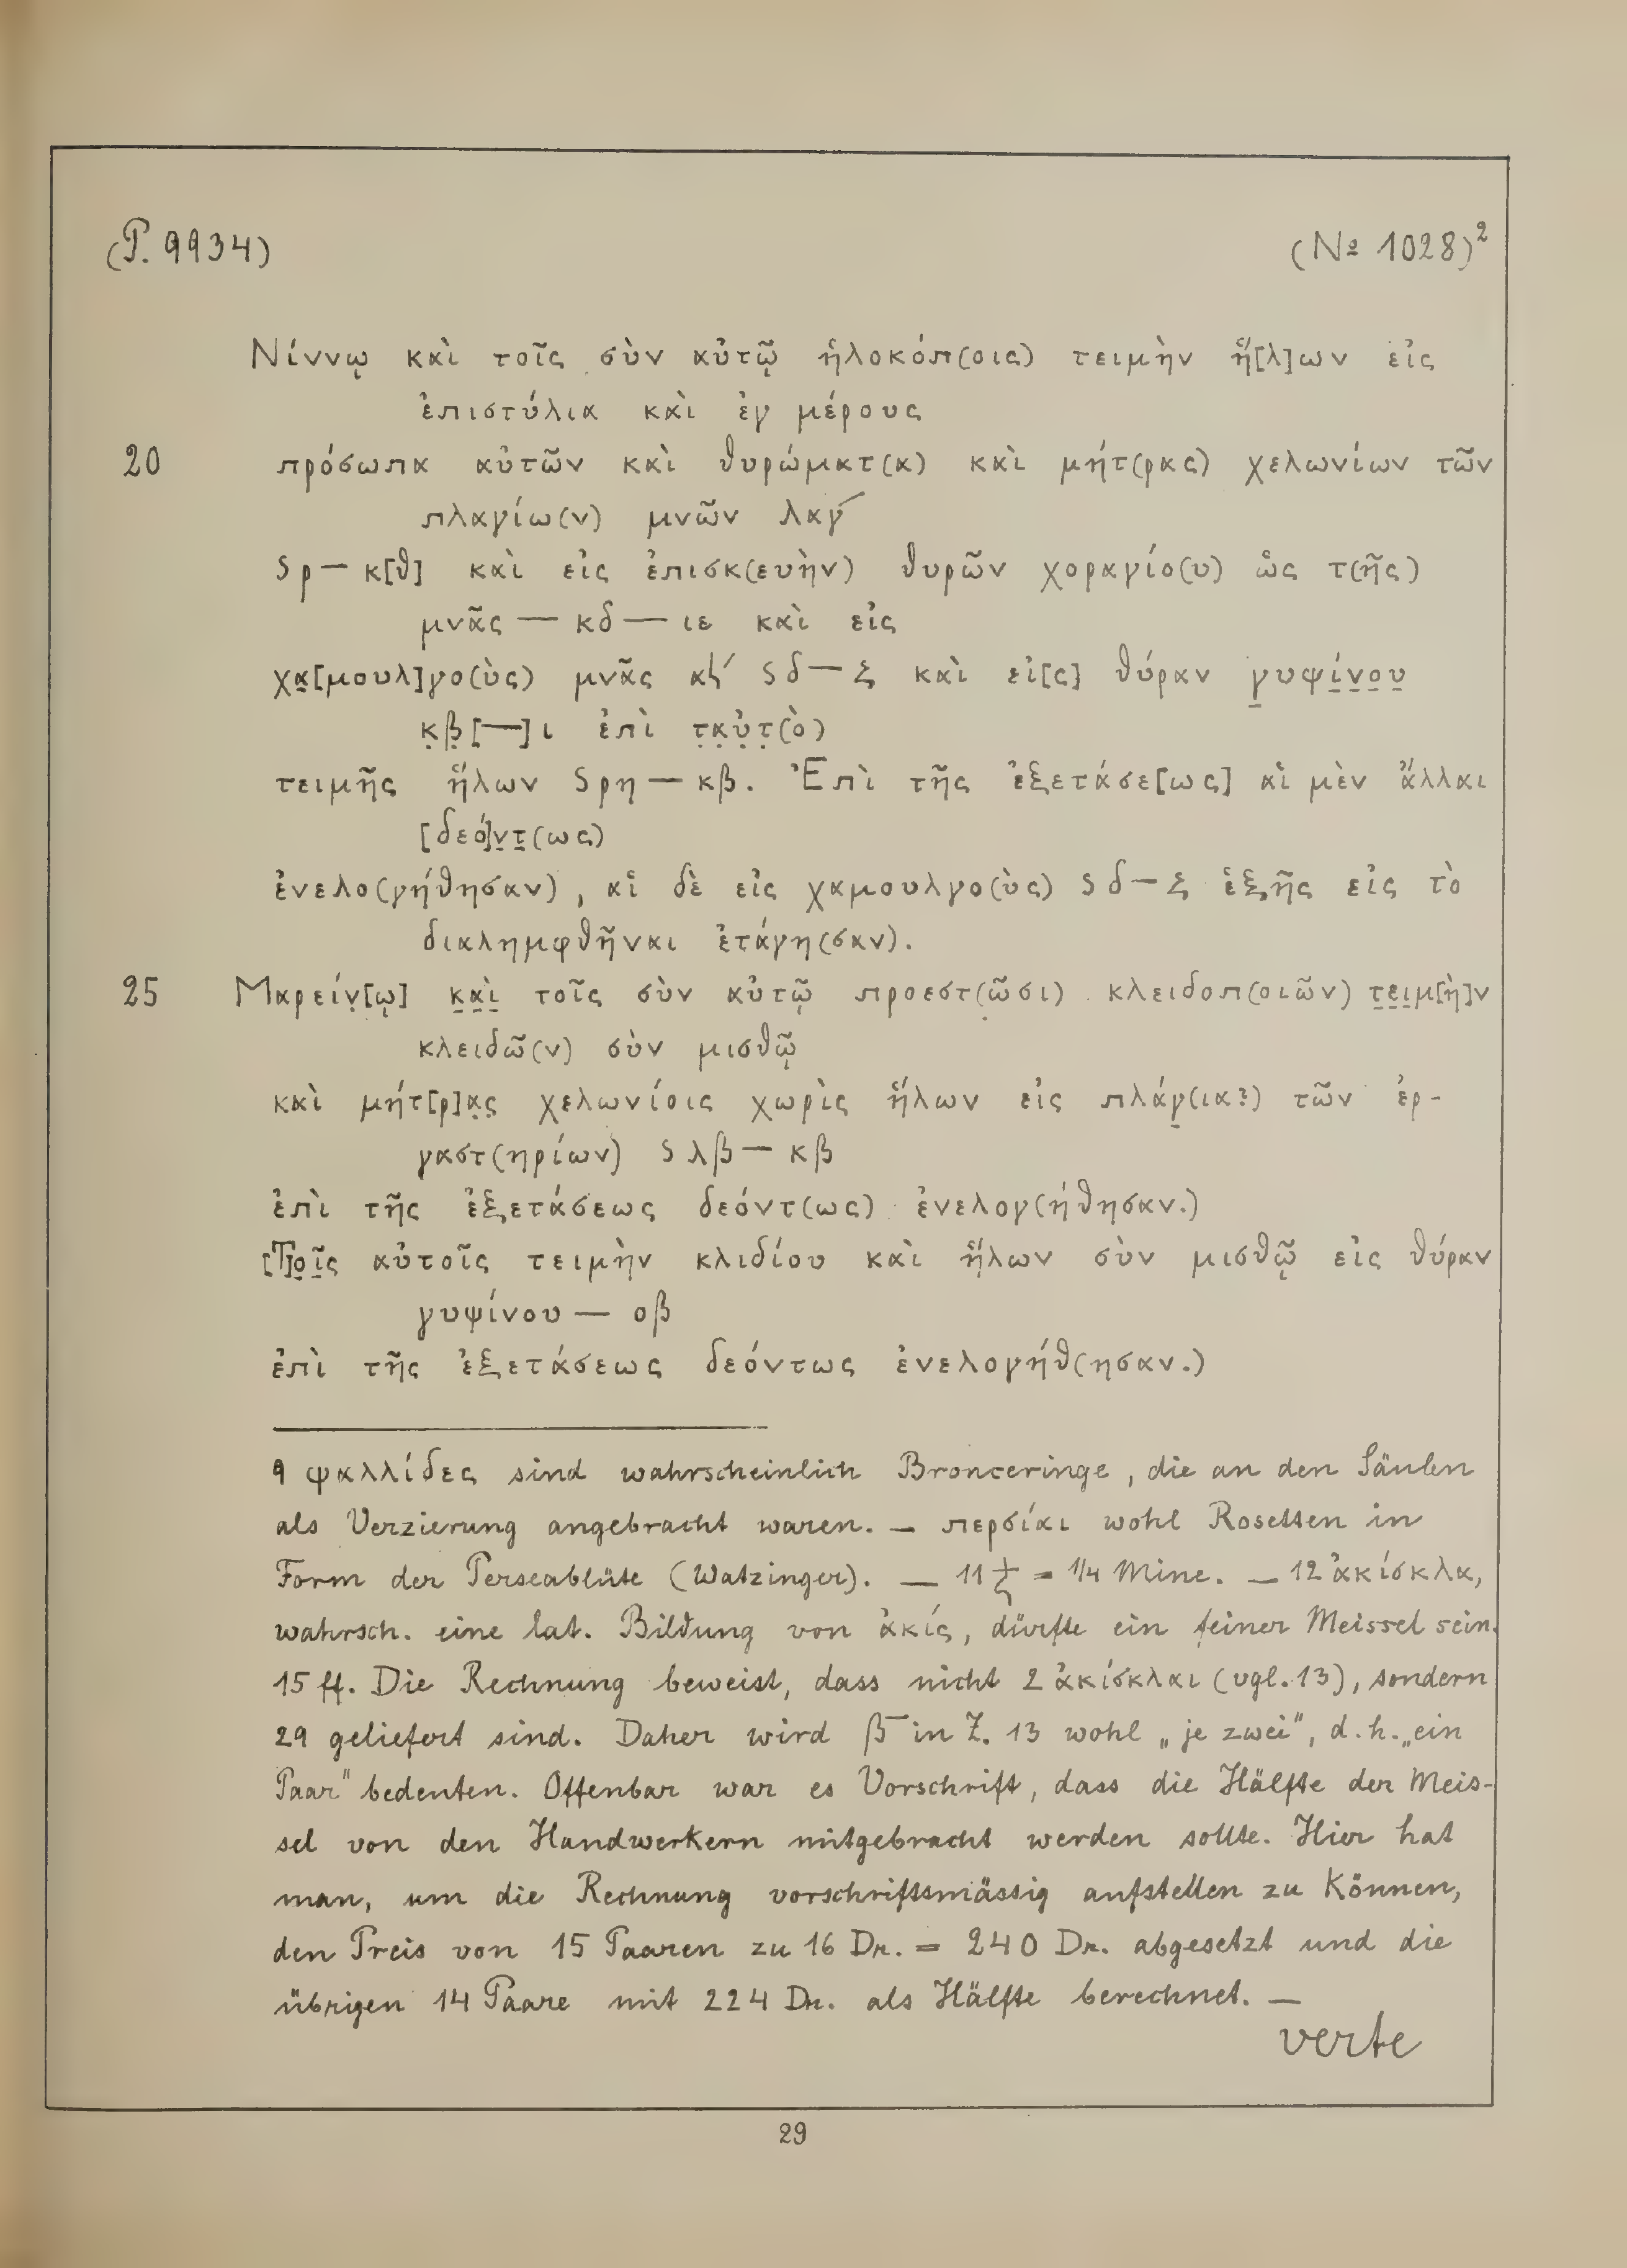 (P. 9934)
(№ 1028)²
Νίννῳ καὶ τοῖς σὺν αὐτῷ ἡλοκόπ(οις) τειμὴν ἥ[λ]ων εἰς
ἐπιστύλια καὶ ἐγ μέρους
20 πρόσωπα αὐτῶν καὶ θυρώματ(α) καὶ μήτ(ρας) χελωνίων τῶν
πλαγίω(ν) μνῶν λαγ´
S ρ — κ[θ] καὶ εἰς ἐπισκ(ευὴν) θυρῶν χοραγίο(υ) ὡς τ(ῆς)
μνᾶς — κδ — ιε καὶ εἰς
χα̣[μουλ]γο(ὺς) μνᾶς S δ — ξ καὶ εἰ[ς] θύραν γ̣υψί̣ν̣ο̣υ̣
κ̣β̣[—]ι ἐπὶ τ̣α̣ὐ̣τ̣(ὸ)
τειμῆς ἥλων S ρη — κβ. Ἐπὶ τῆς ἐξετάσε[ως] αἱ μὲν ἄλλαι
[δεό]ν̣τ̣(ως)
ἐνελο(γήθησαν), αἱ δὲ εἰς χαμουλγο(ὺς) S δ — ξ ἑξῆς εἰς τὸ
διαλημφθῆναι ἐτάγη(σαν).
25 Μαρείν̣[ῳ] κ̣α̣ὶ̣ τοῖς σὺν αὐτῷ προεστ(ῶσι) κλειδοπ(οιῶν) τ̣ε̣ι̣μ[ὴ]ν
κλειδῶ(ν) σὺν μισθῷ
καὶ μήτ[ρ]α̣ς̣ χελωνίοις χωρὶς ἥλων εἰς πλάγ̣(ια?) τῶν ἐρ-
γαστ(ηρίων) S λβ — κβ
ἐπὶ τῆς ἐξετάσεως δεόντ(ως) ἐνελογ(ήθησαν.)
[Τ]ο̣ῖ̣ς αὐτοῖς τειμὴν κλιδίου καὶ ἥλων σὺν μισθῷ εἰς θύραν
γυψίνου — οβ
ἐπὶ τῆς ἐξετάσεως δεόντως ἐνελογήθ(ησαν.)
9 ψαλλίδες sind wahrscheinlich Bronceringe, die an den Säulen
als Verzierung angebracht waren. — περσίαι wohl Rosetten in
Form der Perseablüte (Watzinger). — 11 = 1/4 Mine. — 12 ἀκίσκλα,
wahrsch. eine lat. Bildung von ἀκίς, dürfte ein feiner Meissel sein.
15 ff. Die Rechnung beweist, dass nicht 2 ἀκίσκλαι (vgl. 13), sondern
29 geliefert sind. Daher wird β̅ in Z. 13 wohl „je zwei", d. h. „ein
Paar" bedeuten. Offenbar war es Vorschrift, dass die Hälfte der Meis-
sel von den Handwerkern mitgebracht werden sollte. Hier hat
man, um die Rechnung vorschriftsmässig aufstellen zu können,
den Preis von 15 Paaren zu 16 Dr. = 240 Dr. abgesetzt und die
übrigen 14 Paare mit 224 Dr. als Hälfte berechnet. —
verte
29